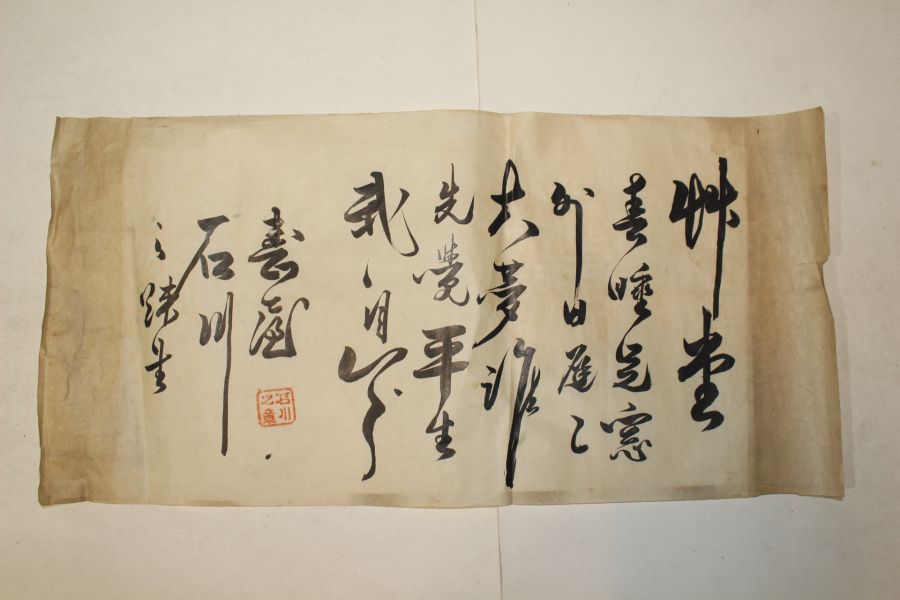 艸堂
春睡足窓
外日遲〻
大夢誰
先覺平生
我自知
石川
之
石川
之章